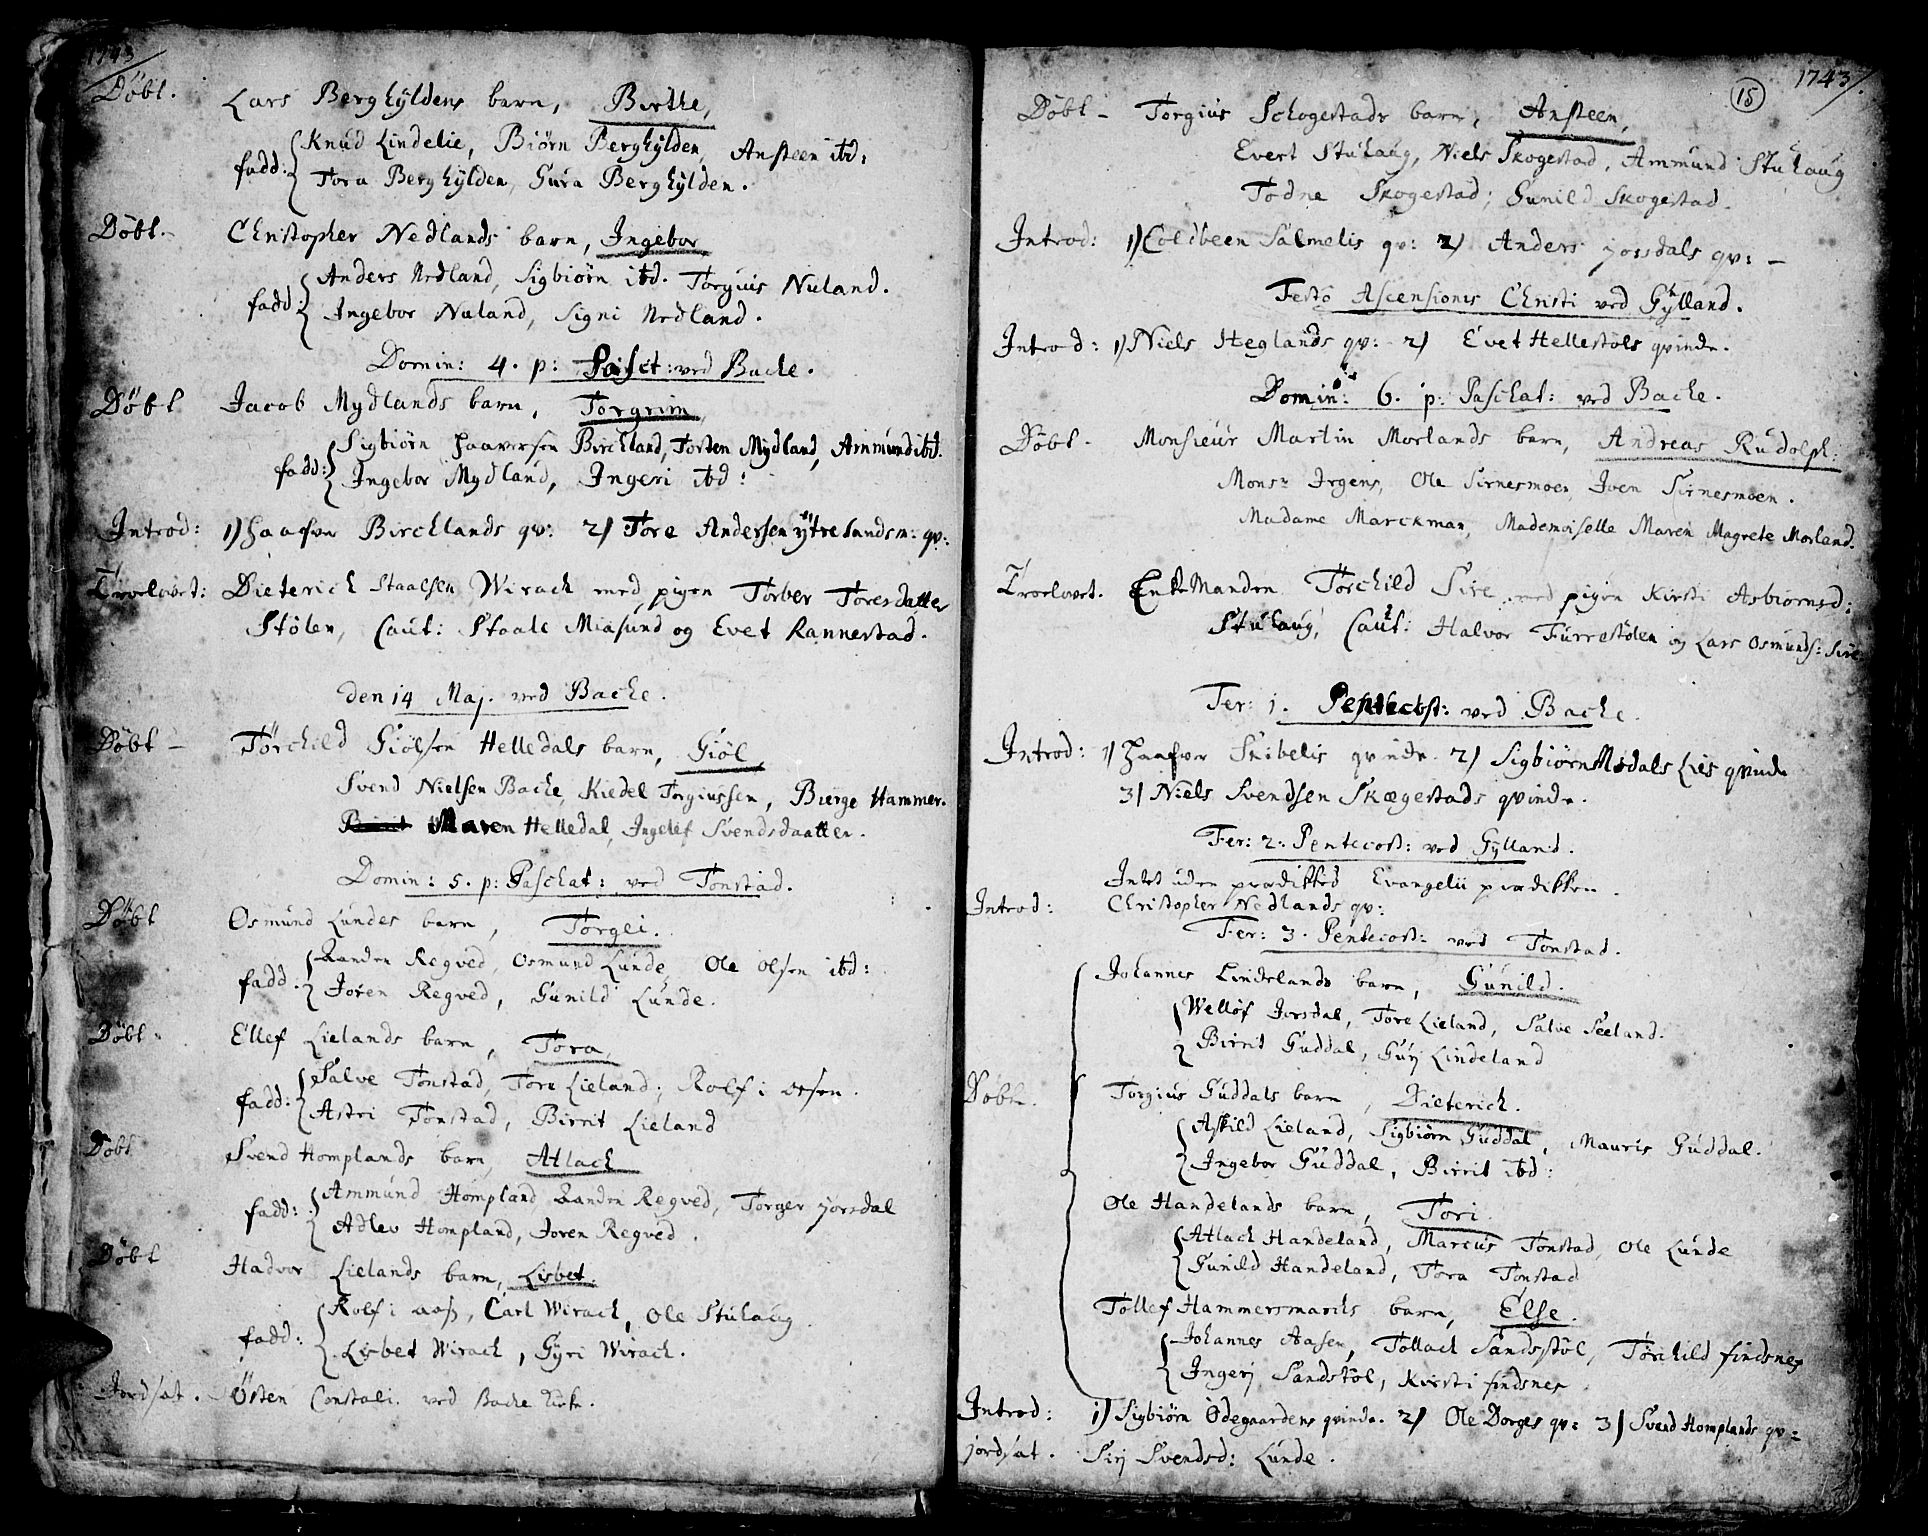 1743
Døbt. Lars Berghÿldens barn, Birthe,
fadd: Knud Lindelie, Biørn Berghÿlden, Ansteen itd:
Tora Berghÿlden, Gura Berghÿlden.
Døbt. Christopher Nedlands barn, Ingebor,
fadd: Anders Nedland, Sigbiørn itd. Torguis Nuland.
Ingebor Nuland, Signi Nedland.
Domin: 4. p: Pasct: ved Backe.
Døbt Jacob Mydlands barn, Torgrim,
fadd: Sigbiørn Haaversen Birckland, Torsten Mydland, Ammund itd.
Ingebor Mydland, Ingeri itd:
Introd: 1) Haafvor Bircklands qv: 2) Tore Andersen ÿtre Landsm: qv:
Troelovet: Dieterich Staalsen Wirach med pigen Torber Toresdatter
Stølen, Caut: Staale Miasund og Evet Rannestad.
den 14 Maj. ved Bache.
Døbt - Torchild Giølsen Helledals barn, Giøl,
Svend Nielsen Bache, Kiedel Torgiussen, Børge Hammer.
Maren Helledal, Ingelef Svendsdaatter.
Domin: 5. p: Paschat: ved Tonstad.
Døbt Osmund Lundes barn, Torgei.
fadd: Randen Regved, Osmund Lunde, Ole Olsen itd:
Joren Regved, Gunild Lunde.
Døbt. Ellef Lielands barn, Tora,
fadd: Salve Tonstad, Tore Lieland; Rolf i Aasen.
Astri Tonstad, Birrit Lieland
Døbt Svend Homplands barn, Atlach
fadd: Ammund Hompland, Randen Regved, Torger Jorsdal
Adlev Hompland, Joren Regved.
Døbt Hadvor Lielands barn, Lisbet.
fadd: Rolf i Aas, Carl Wirach, Ole Stulaug.
Lisbet Wirach, Gyri Wirach.
Jordsat. Østen Constali ved Backe Kirke.
15 1743.
Døbt - Torgius Schogestads barn, Ansteen,
Evert Stulaug, Niels Skogestad, Ammund Stulaug
Todne Skogestad; Gunild Skogestad.
Introd: 1) Coldbeen Salmelis qv: 2) Anders Jorsdals qv: -
Festo Ascensionis Christi ved Gÿlland.
Introd: 1) Niels Heglands qv: 2) Evet Hellestøls qvinde.
Domin: 6. p: Paschat: ved Bache.
Døbt. Monsieur Martin Morlands barn, Andreas Rudolph:
Monsr Irgens, Ole Sirnesmoen, Iven Sirnesmoen.
Madame Marckman, Mademoiselle Maren Magrete Morland.
Troelovet. Enke Manden Torchild Sire med pigen Kirsti Asbiørnsd:
Stulaug, Caut: Halvor Furrestølen og Lars Osmunds: Sire.
Fer: 1. Pentecost: ved Bache.
Introd: 1) Haafvor Skibelis qvinde. 2) Sigbiørn Modals Lies qvinde
3) Niels Svendsen Skægestads qvinde.
Fer: 2. Pentecost: ved Gÿlland.
Intet uden prædikked Evangelii prædikken.
Introd: Christopher Nedlands qv:
Fer: 3. Pentecost: ved Tonstad.
Johannes Lindelands barn, Gunild.
Welløf Jorsdal, Tore Lieland, Salve Seeland.
Birrit Guddal, Gurj Lindeland
Døbt. Torgius Guddals barn, Dieterich.
Askild Lieland, Sigbiørn Guddal, Mauris Guddal.
Ingebor Guddal, Birrit itd:
Ole Handelands barn, Tori.
Atlach Handeland, Marcus Tonstad, Ole Lunde
Gunild Handeland, Tora Tonstad
Tollef Hammersmarchs barn, Else.
Johannes Aasen, Tollach Sandstøl, Torchild findsnes
Ingerj Sandstøl, Kirsti findsnes
Introd: 1) Sigbiørn Ødegaardens qvinde. 2) Ole Dorges qv: 3) Svend Homplands qv:
jordsat. Sirj Svendsd: Lunde.